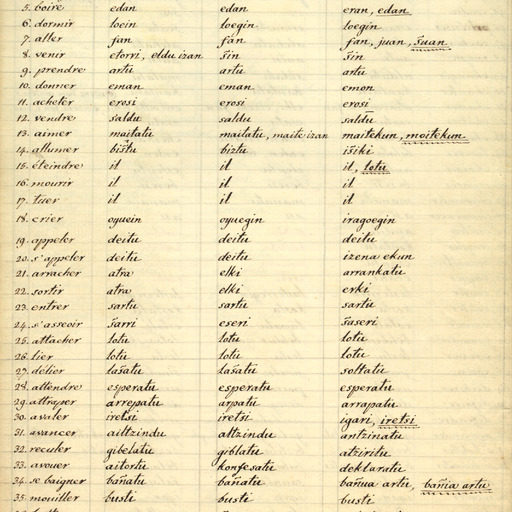 5. boire edan edan eran, edan
6. dormir loein loegin loegin
7. aller fan fan fan, juan, šuan
8. venir etorri, eldu izan šin šin
9. prendre artu artu artu
10. donner eman eman emon
11. acheter erosi erosi erosi
12. vendre saldu saldu saldu
13. aimer maitatu maitatu, maite izan maitekun, moitekun
14. allumer bištu biztu išiki
15. éteindre il il il, lotu
16. mourir il il il
17. tuer il il il
18. crier oyuein oyuegin iragoegin
19. appeler deitu deitu deitu
20. s'appeler deitu deitu izena ekun
21. arracher atra elki arrankatu
22. sortir atra elki erki
23. entrer sartu sartu sartu
24. s'asseoir šarri eseri šaseri
25. attacher lotu lotu lotu
26. lier lotu lotu lotu
27. délier lašatu lašatu soltatu
28. attendre esperatu esperatu esperatu
29. attraper arrepatu arpatu arrapatu
30. avaler iretsi iretsi igari, iretsi
31. avancer aittzindu altzindu antzinatu
32. reculer gibelatu giblatu atziritu
33. avouer aitortu konfesatu deklaratu
34. se baigner bañatu bañatu bañua artu, bañia artu
35. mouiller busti busti busti